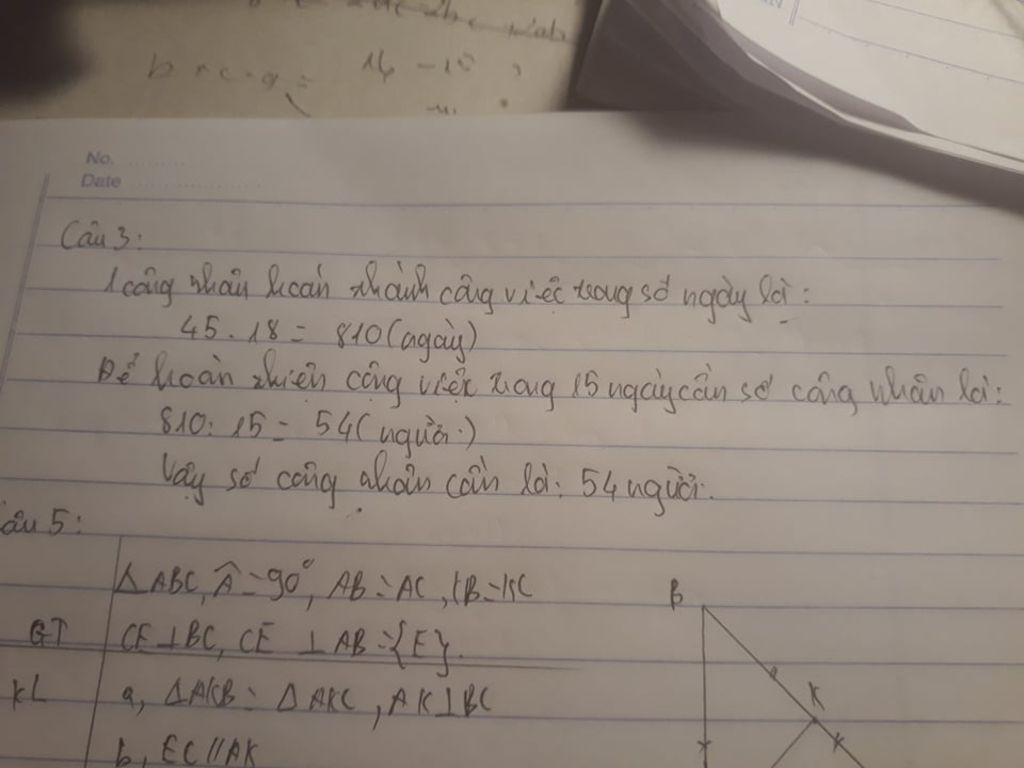 b + c - a =
14 - 10
No.
Date
Câu 3:
1 công nhân hoàn thành công việc trong số ngày là:
45 . 18 = 810 (ngày)
Để hoàn thiện công việc trong 15 ngày cần số công nhân là:
810 : 15 = 54 (người)
Vậy số công nhân cần là: 54 người.
âu 5:
ΔABC, Â = 90°, AB = AC, KB = KC
GT CE ⊥ BC, CE ⊥ AB = {E}.
KL a, ΔAKB = ΔAKC, AK ⊥ BC
b, EC // AK
B
K